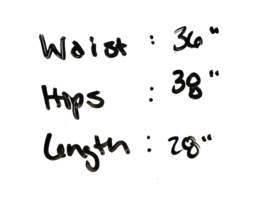 Waist : 36"
Hips : 38"
Length : 28"